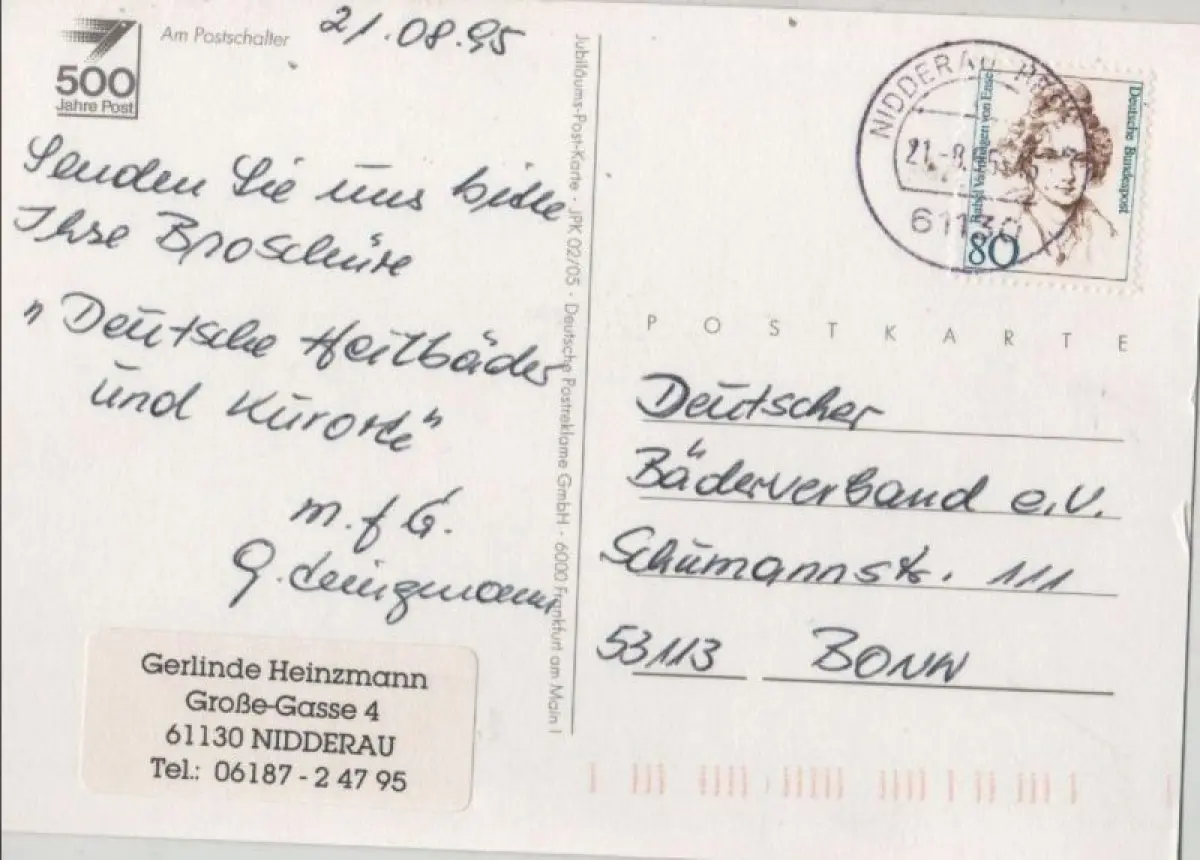 500
Jahre Post
Am Postschalter
21.08.95
Senden Sie uns bitte
Ihre Broschüre
"Deutsche Heilbäder
und Kurorte"
m.f.G.
G. Heinzmann
Gerlinde Heinzmann
Große-Gasse 4
61130 NIDDERAU
Tel.: 06187 - 2 47 95
Jubiläums-Post-Karte · JPK 02/05 · Deutsche Postreklame GmbH · 6000 Frankfurt am Main 1
NIDDERAU
21.-8.95
61130
Deutsche Bundespost
Rahel Varnhagen von Ense
80
POSTKARTE
Deutscher
Bäderverband e.V.
Schumannstr. 111
53113 BONN